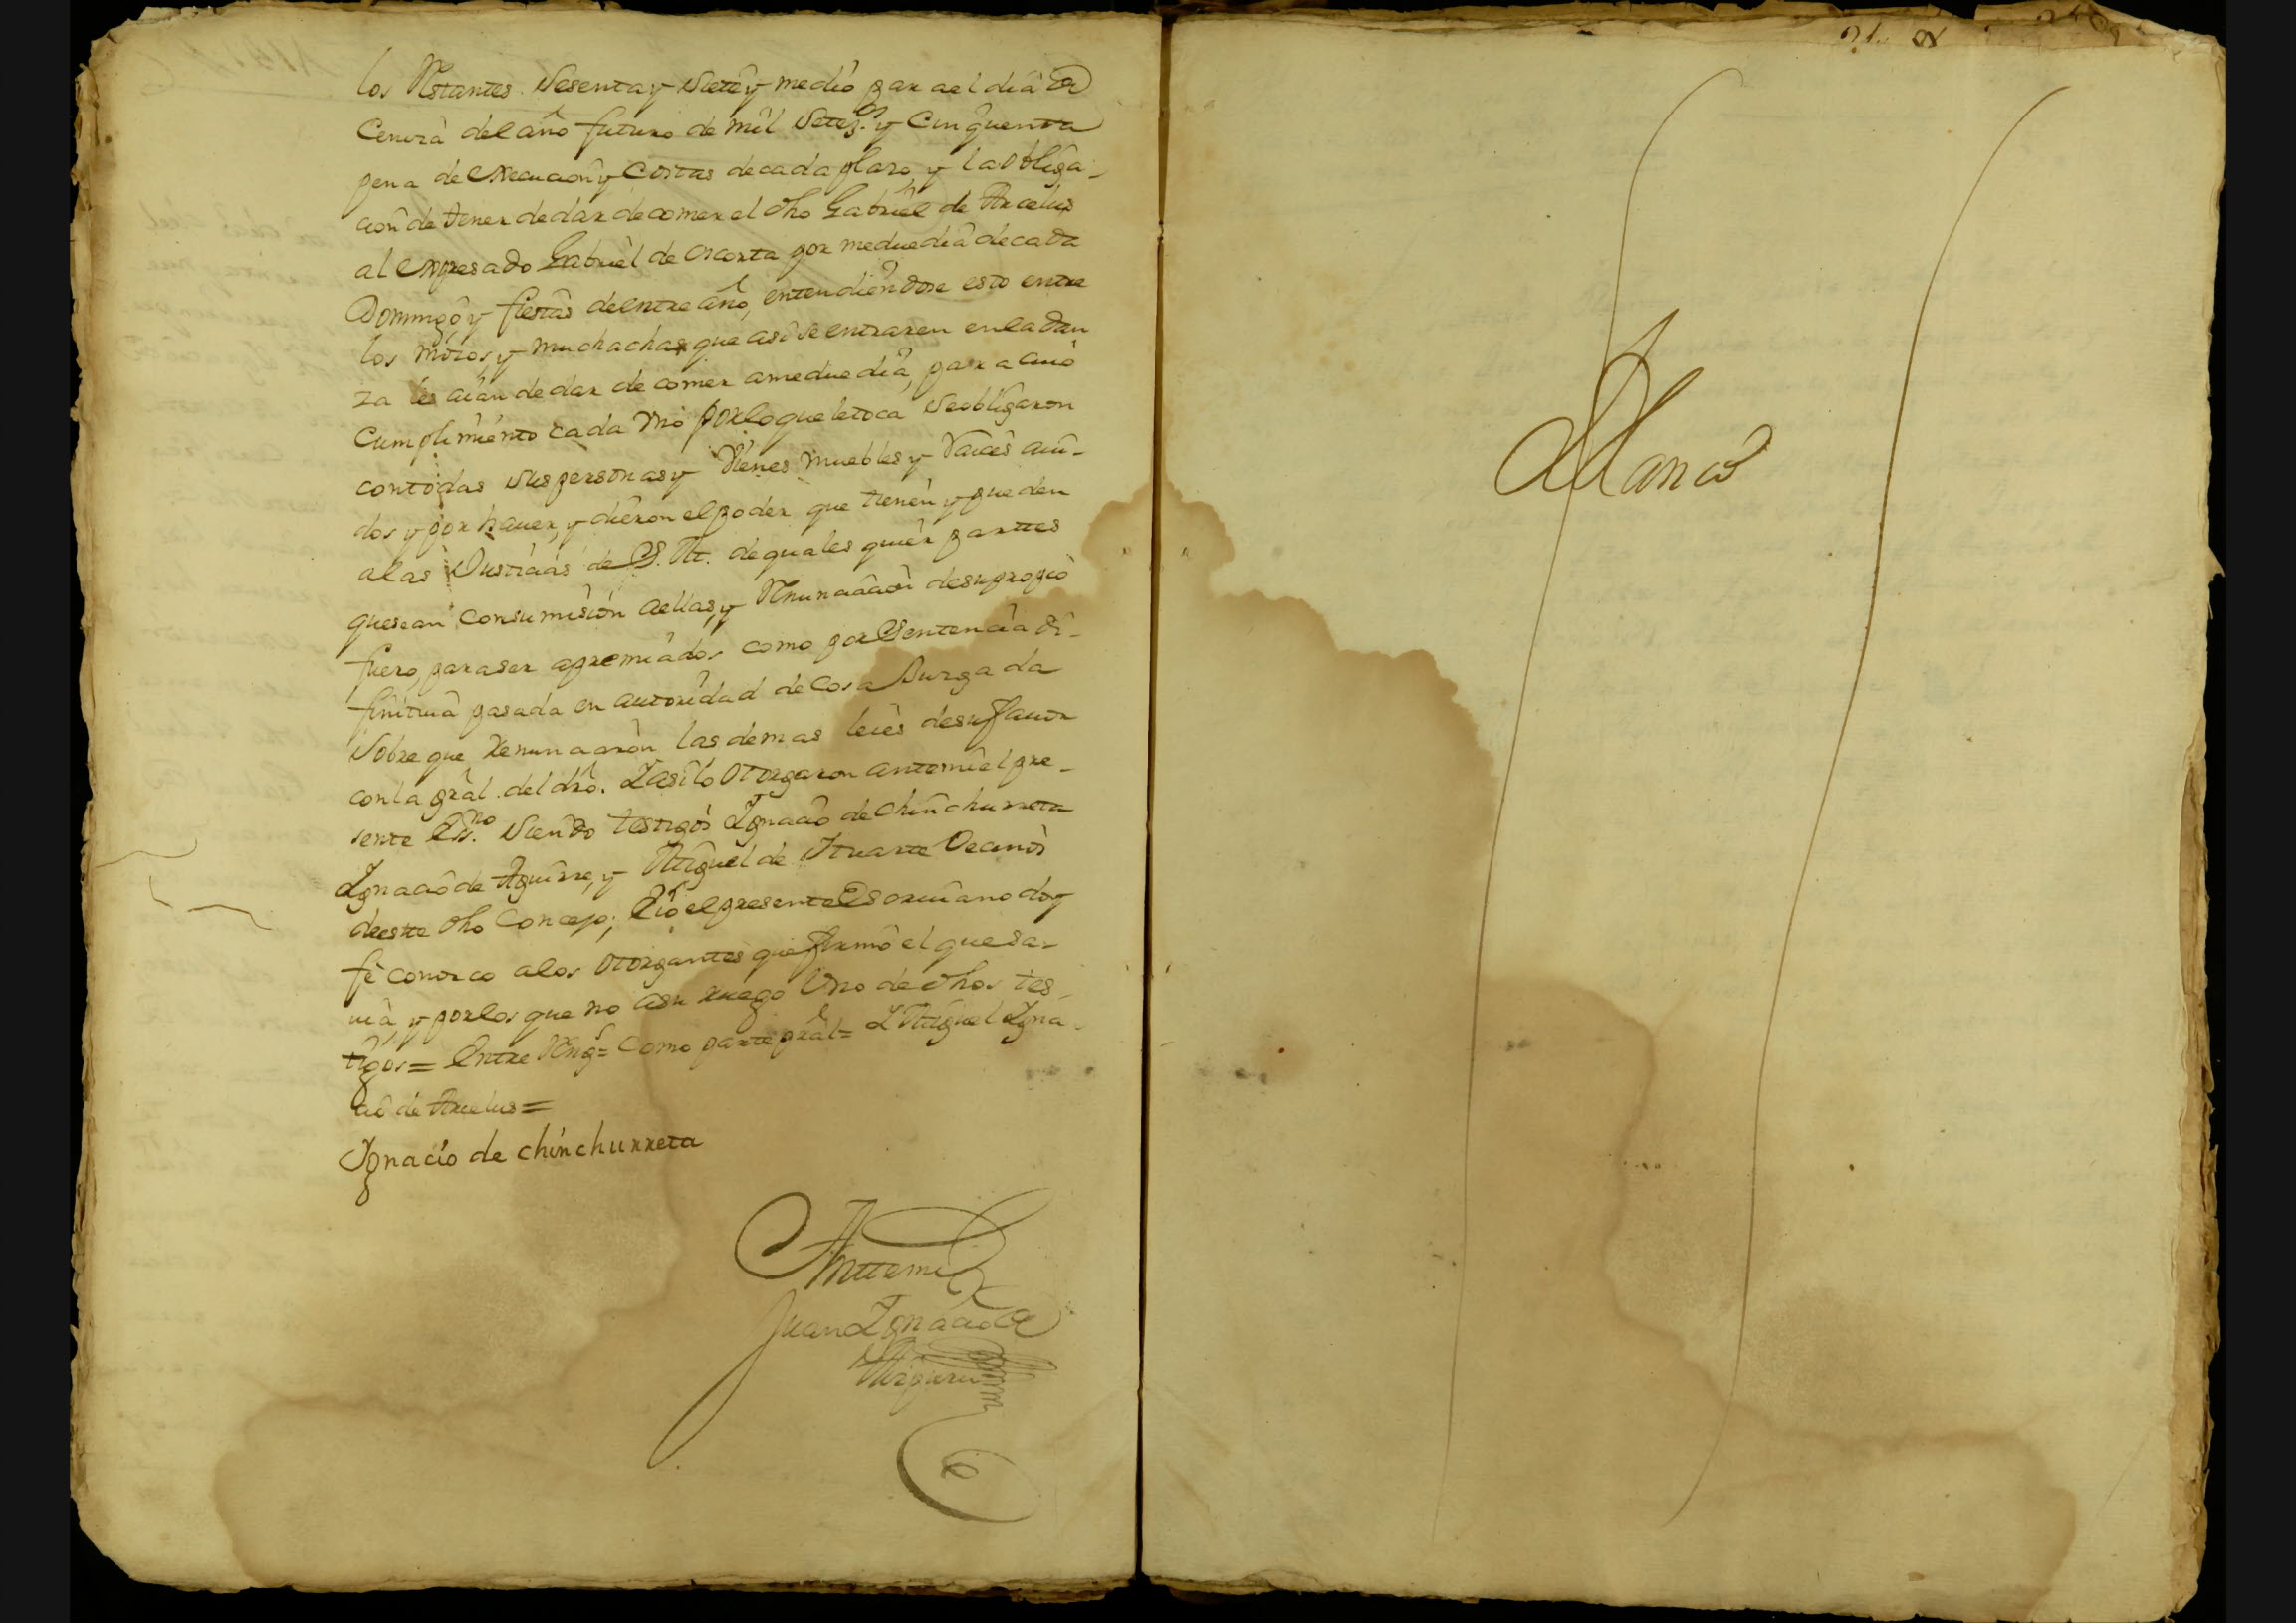 los Restantes. Sesenta y Siete y medio para el dia de
Ceniza del año futuro de mil Setez.os y Cinquenta
pena de execucion y Costas de cada plazo, y la obliga-
cion de tener de dar de comer el dho Gabriel de Arcelus
al expresado Gabriel de Ascorta por medio dia de cada
Domingo, y fiestas de entre año, entendiendose esto entre
los mozos, y muchachas que asi se entraren en la dan
za les aian de dar de comer a medio dia, para cuio
Cumplimiento cada uno por lo que le toca se obligaron
con todas sus personas y vienes muebles y raices avi-
dos y por haver, y dieron el poder que tienen y pueden
a las Justicias de S. M. de quales quier parttes
que sean con sumision a ellas, y Renunciacion de su propio
fuero, para ser apremiados como por Sentencia di-
finitiva pasada en autoridad de Cosa Jurgada
sobre que renunciaron las demas leies de su favor
con la gral. del dro. Y asi lo otorgaron ante mi el pre-
sente Ess.no siendo testigos Ignacio de Chinchurreta
Ignacio de Aguirre, y Miguel de Ituarte vecinos
de estte dho Concejo; E io el presente Escrivano doy
fe conozco a los otorgantes que firmó el que sa-
via, y por los que no a su ruego Uno de dhos tes-
tigos= Entre Reng.s= Como parte pral= Y Miguel Igna-
cio de Arcelus=
Ignacio de chinchurreta
Antte mi
Juan Ignacio de
Blanco